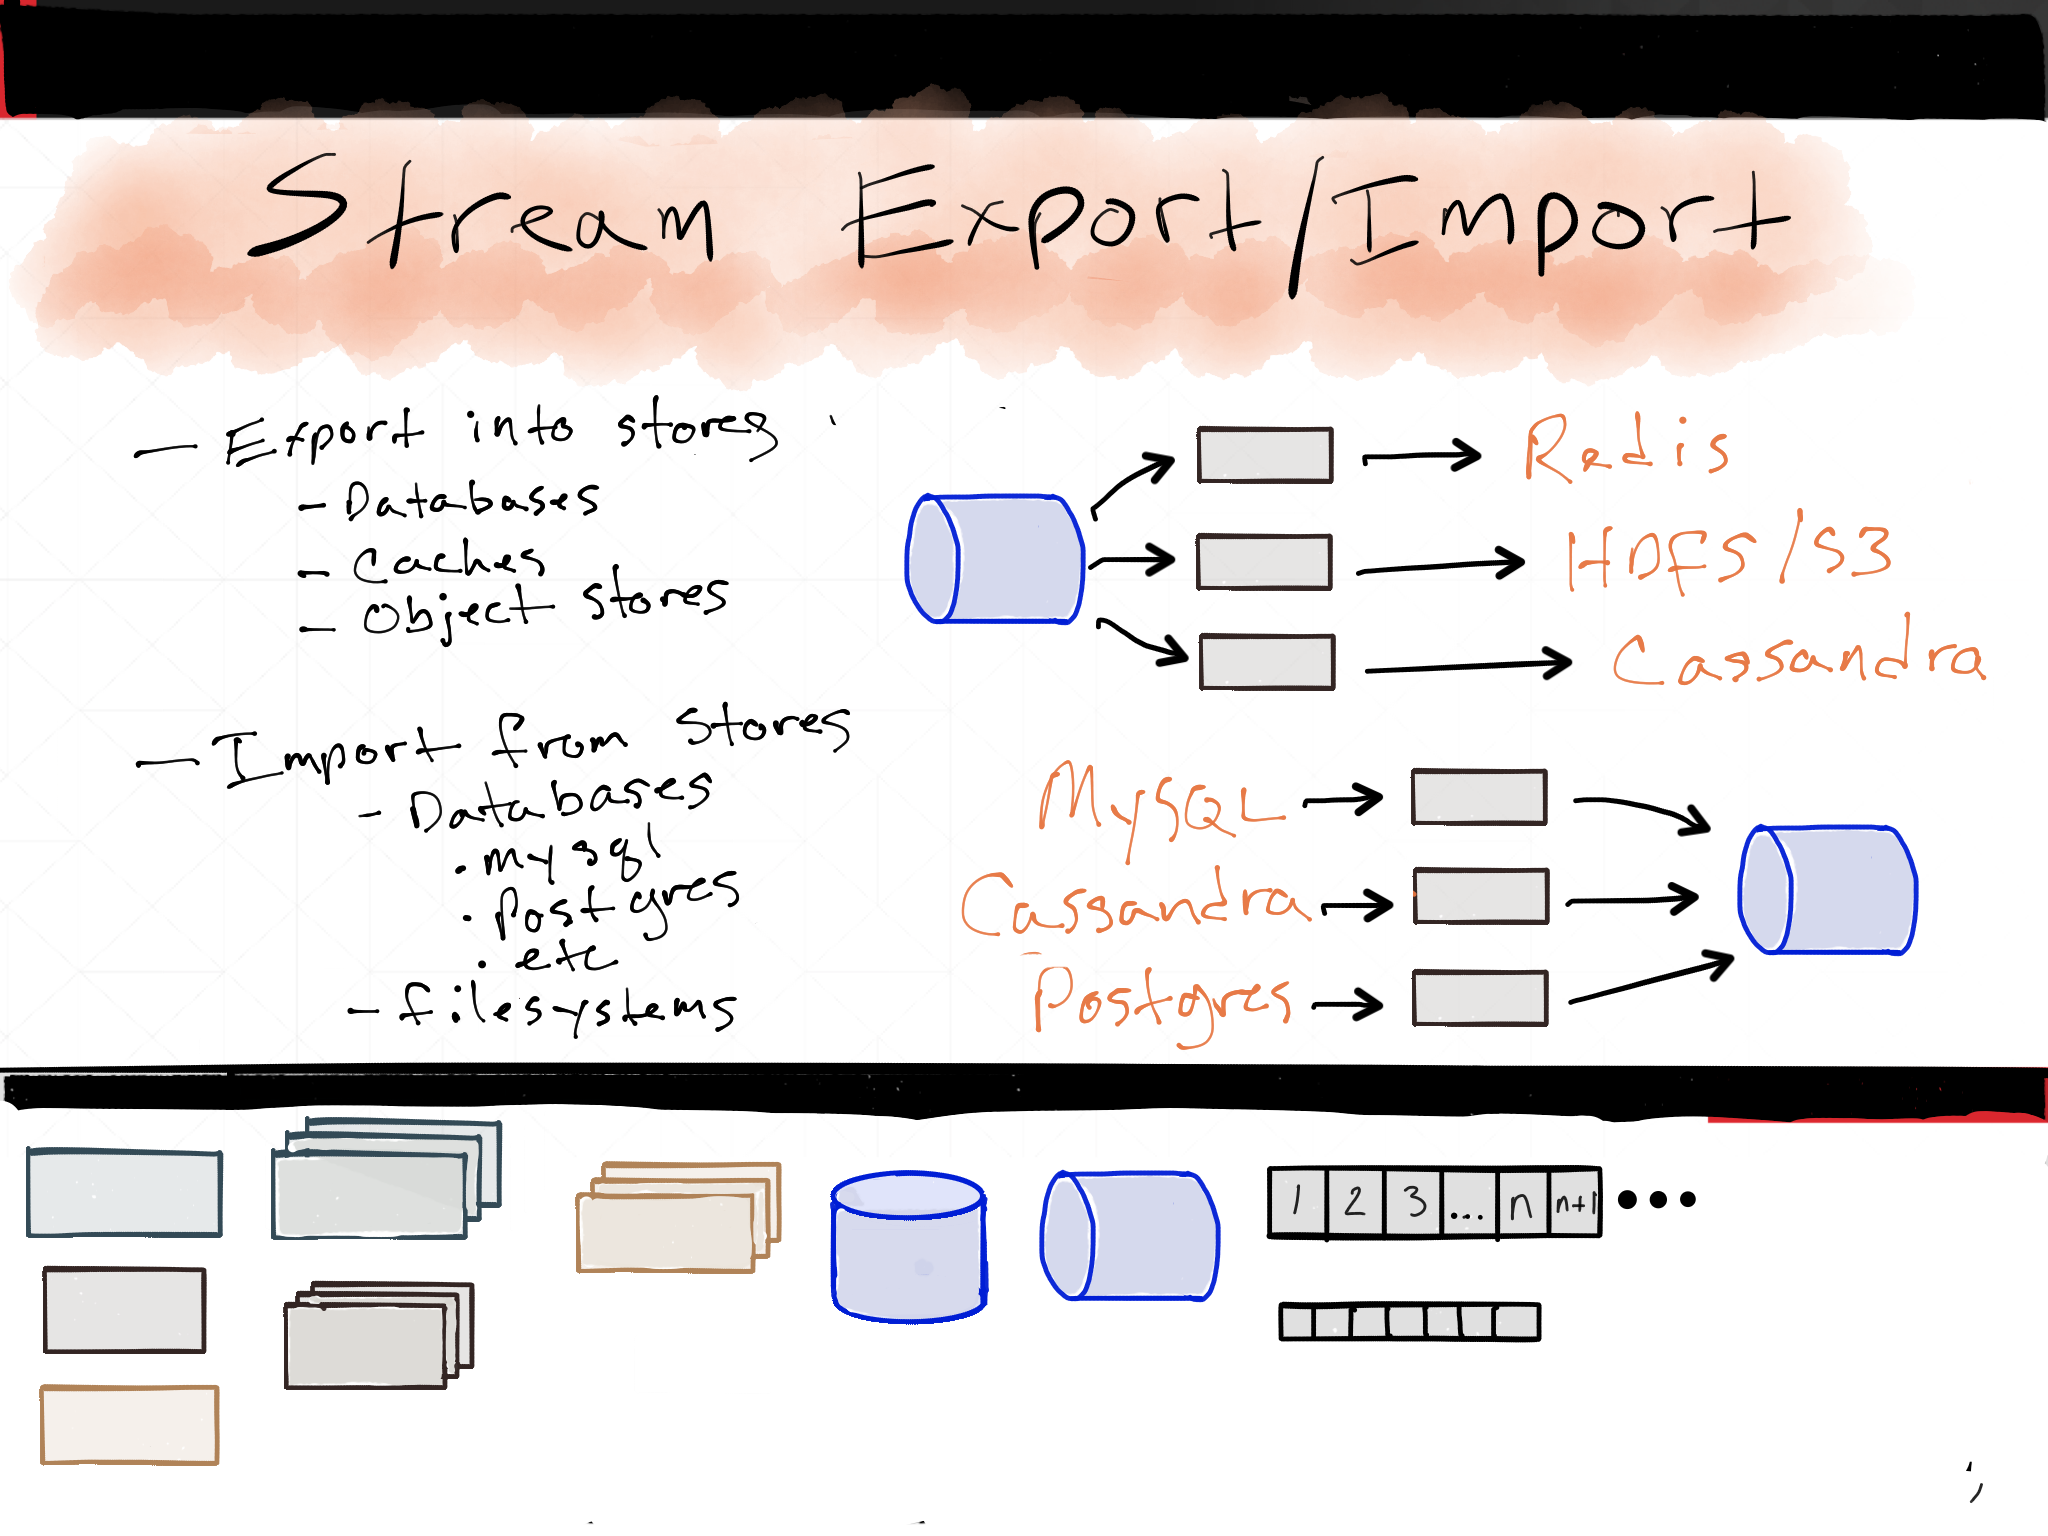 Stream Export/Import
— Export into stores
- Databases
- Caches
- Object stores
— Import from stores
- Databases
. mysql
. Postgres
. etc
- filesystems
Redis
HDFS/S3
Cassandra
MySQL
Cassandra
Postgres
1 2 3 ... n n+1 •••